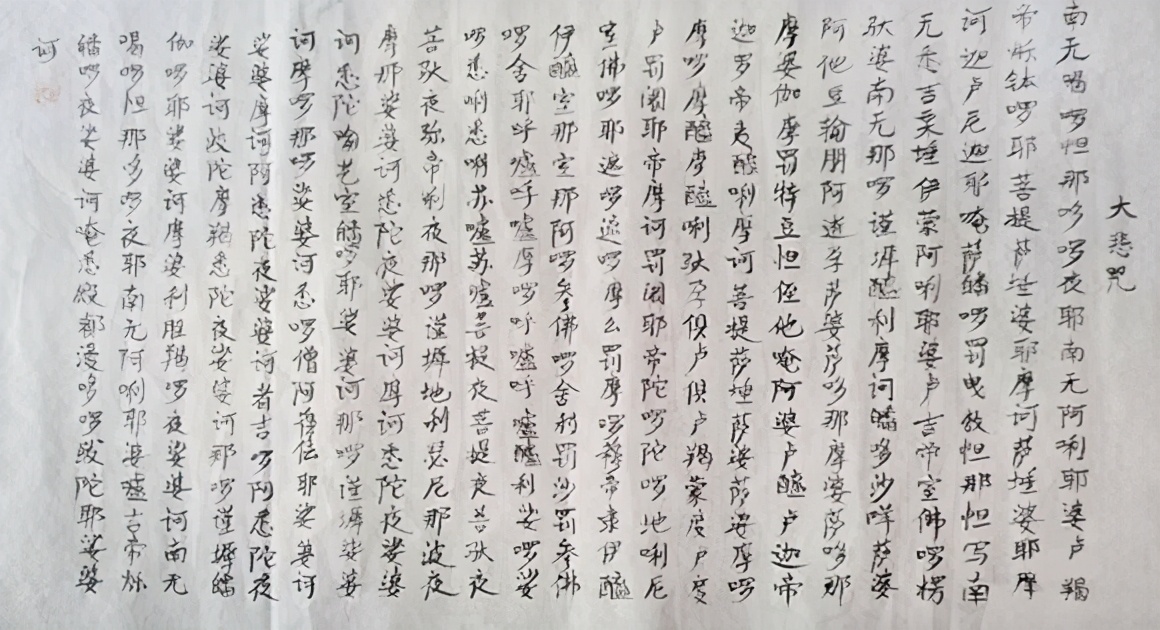 大悲咒
南无喝啰怛那哆啰夜耶南无阿唎耶婆卢羯
帝烁钵啰耶菩提萨埵婆耶摩诃萨埵婆耶摩
诃迦卢尼迦耶唵萨皤啰罚曳数怛那怛写南
无悉吉栗埵伊蒙阿唎耶婆卢吉帝室佛啰楞
驮婆南无那啰谨墀醯利摩诃皤哆沙咩萨婆
阿他豆输朋阿逝孕萨婆萨哆那摩婆萨哆那
摩婆伽摩罚特豆怛侄他唵阿婆卢醯卢迦帝
迦罗帝夷醯唎摩诃菩提萨埵萨婆萨婆摩啰
摩啰摩醯摩醯唎驮孕俱卢俱卢羯蒙度卢度
卢罚阇耶帝摩诃罚阇耶帝陀啰陀啰地唎尼
室佛啰耶遮啰遮啰摩么罚摩啰穆帝隶伊醯
伊醯室那室那阿啰参佛啰舍利罚沙罚参佛
啰舍耶呼嚧呼嚧摩啰呼嚧呼嚧醯利娑啰娑
啰悉唎悉唎苏嚧苏嚧菩提夜菩提夜菩驮夜
菩驮夜弥帝利夜那啰谨墀地利瑟尼那波夜
摩那娑婆诃悉陀夜娑婆诃摩诃悉陀夜娑婆
诃悉陀喻艺室皤啰耶娑婆诃那啰谨墀娑婆
诃摩啰那啰娑婆诃悉啰僧阿穆佉耶娑婆诃
娑婆摩诃阿悉陀夜娑婆诃者吉啰阿悉陀夜
娑婆诃波陀摩羯悉陀夜娑婆诃那啰谨墀皤
伽啰耶娑婆诃摩婆利胜羯啰夜娑婆诃南无
喝啰怛那哆啰夜耶南无阿唎耶婆嚧吉帝烁
皤啰夜娑婆诃唵悉殿都漫哆啰跋陀耶娑婆
诃